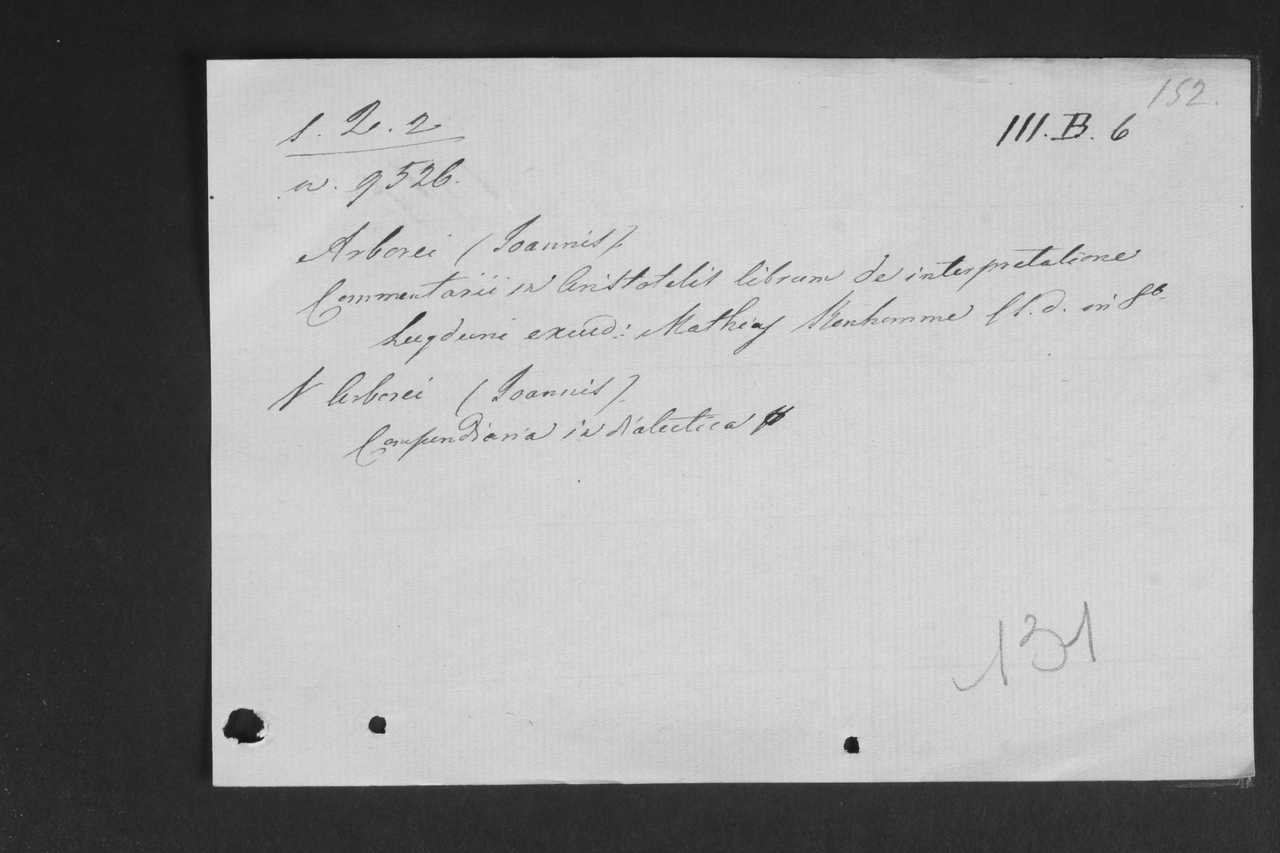 152.
s. 2. 2
III. B. 6
n. 9526.
Arborei (Joannis).
Commentarii in Aristotelis librum de interpretatione
Lugduni excud: Mathias Bonhomme s.d. in 8º.
Arborei (Joannis).
Compendiaria in dialectica
131